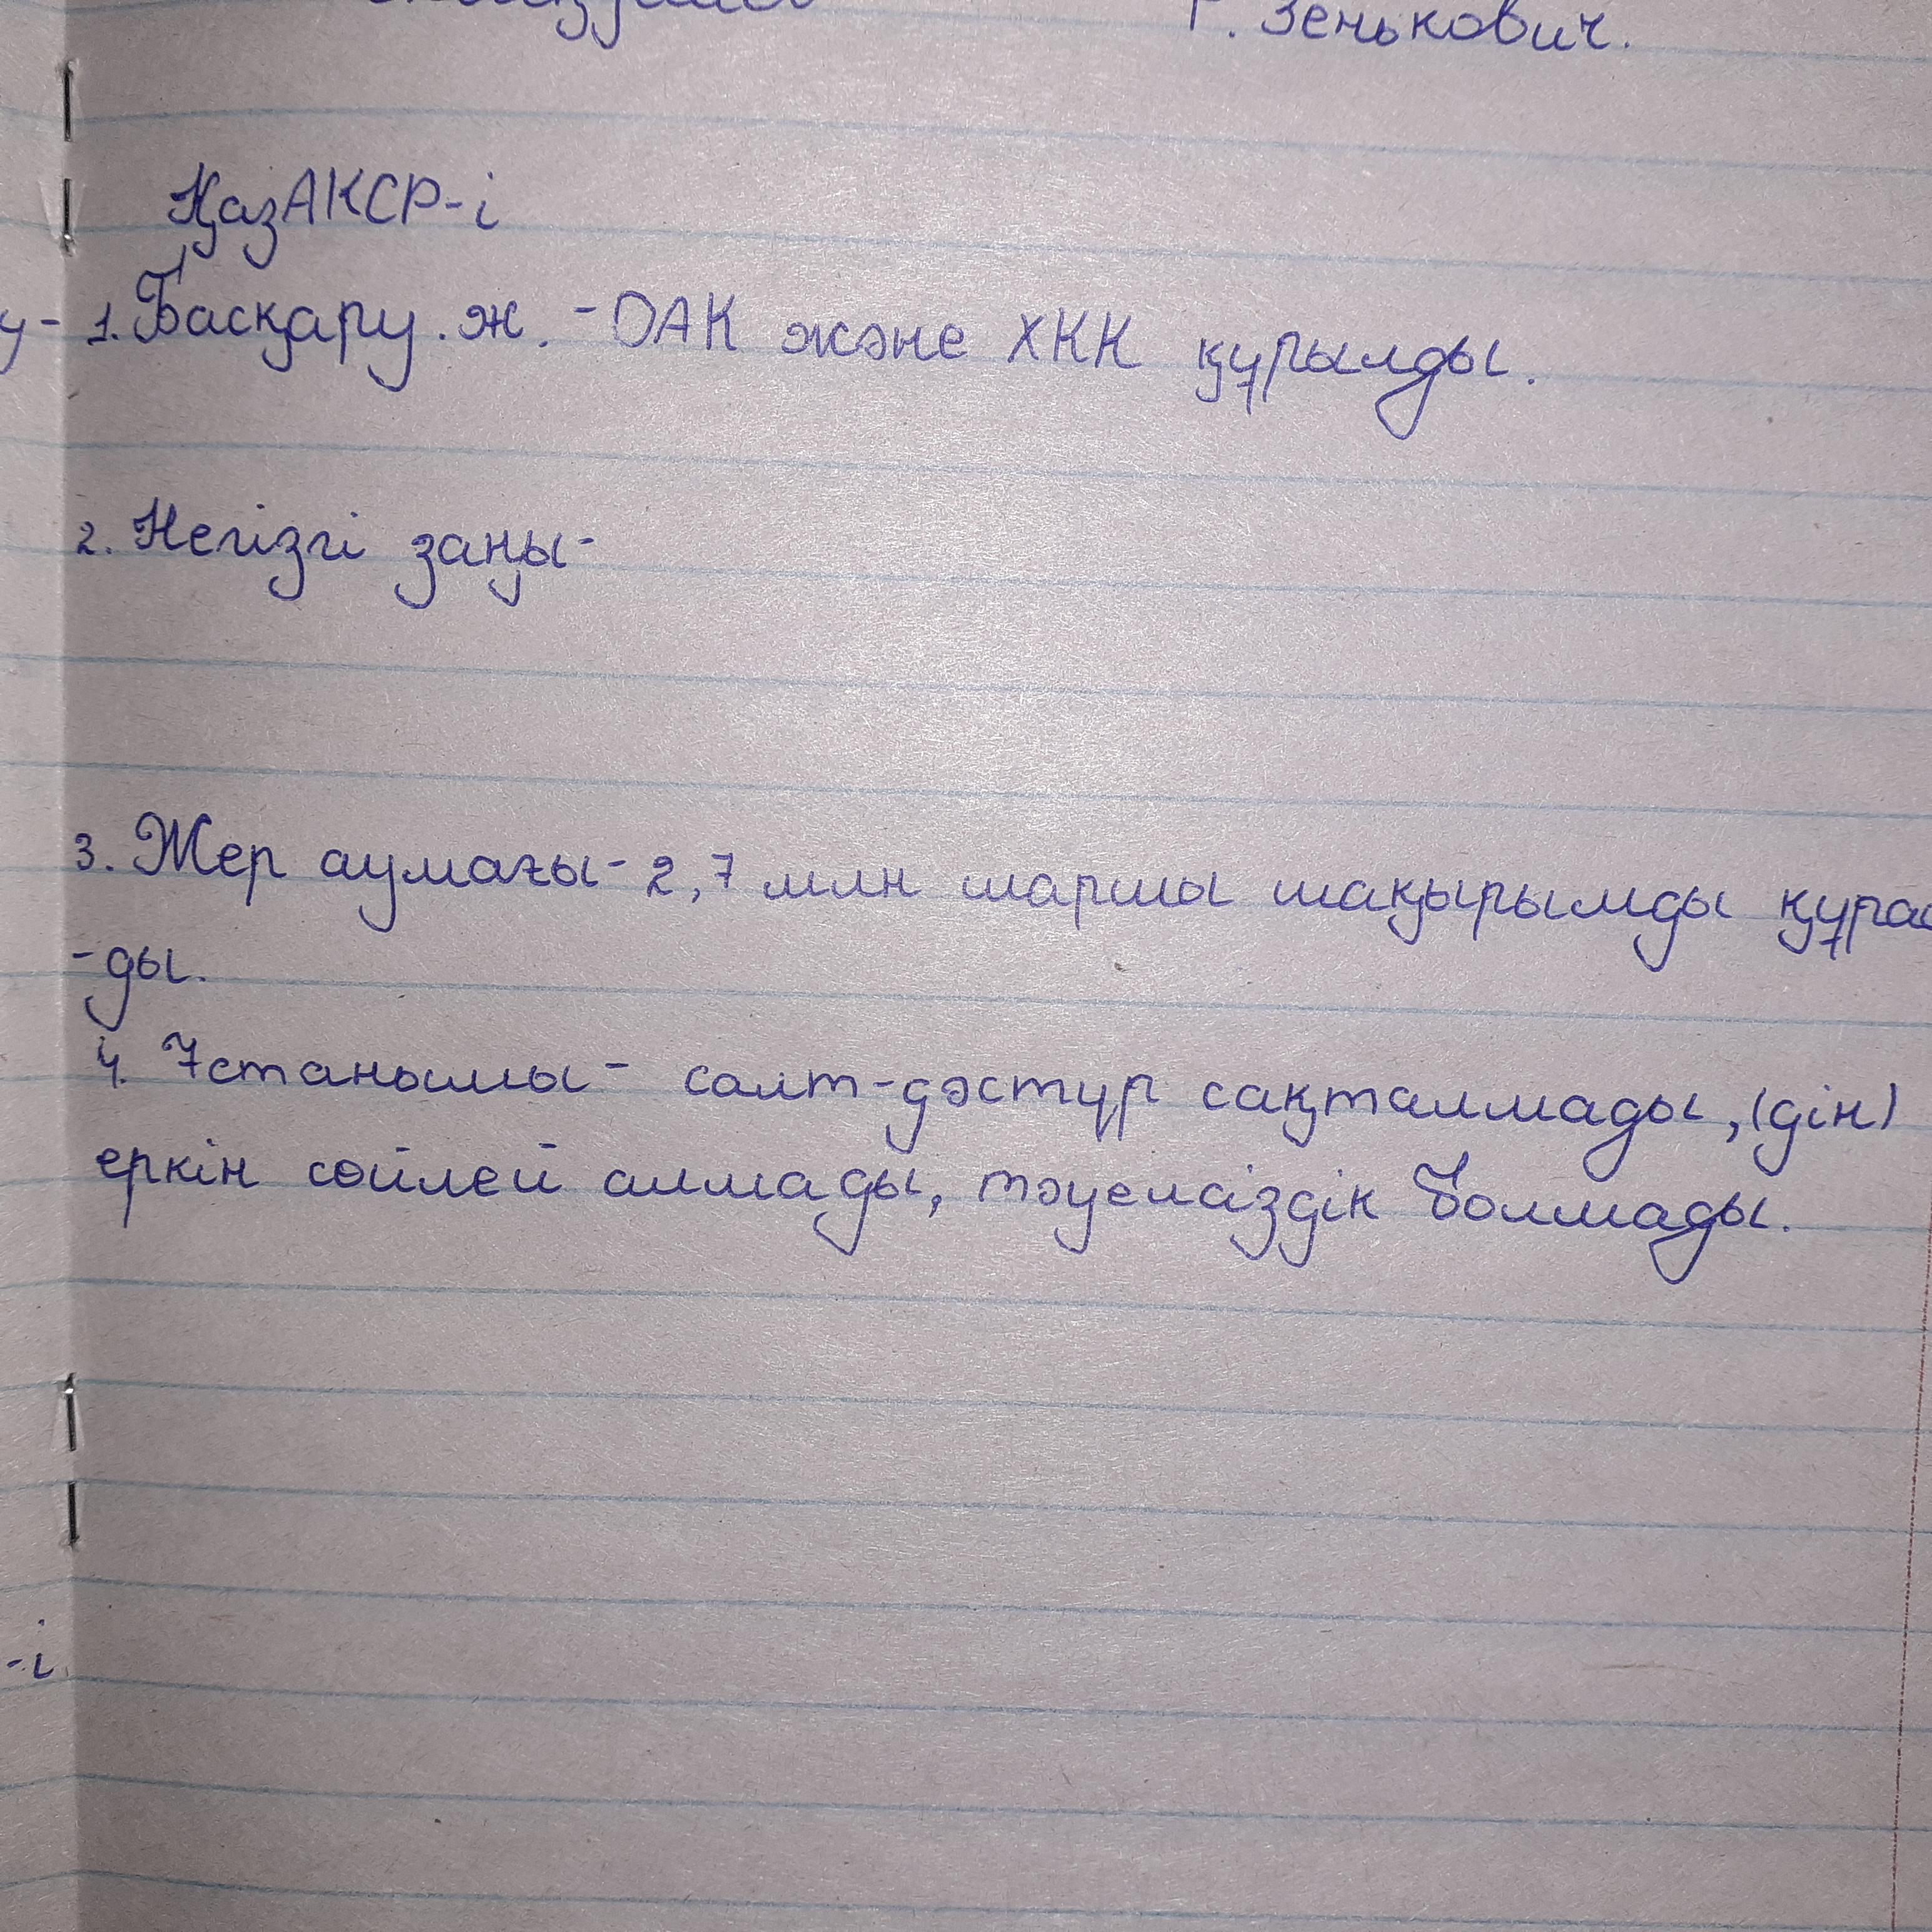 Г. Зенькович.
ҚазАКСР-і
у- 1. Басқару. ж. - ОАК және ХКК құрылды.
2. Негізгі заңы-
3. Жер аумағы- 2,7 млн шаршы шақырымды құрай
-ды.
4. Ұстанымы- салт-дәстүр сақталмады, (дін)
еркін сөйлей алмады, тәуелсіздік болмады.
-і